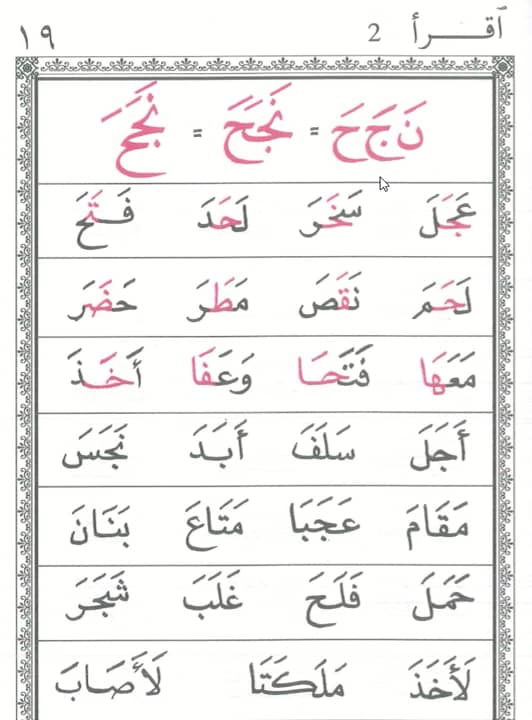 اَقْـرأ 2 ١٩
نَ جَ حَ = نَجَحَ = نَجَحَ
عَجَلَ سَخَرَ لَحَدَ فَتَحَ
لَحَمَ نَقَصَ مَطَرَ حَضَرَ
مَعَهَا فَتَحَا وَعَفَا أَخَذَ
أَجَلَ سَلَفَ أَبَدَ نَجَسَ
مَقَامَ عَجَبَا مَتَاعَ بَنَانَ
حَمَلَ فَلَحَ غَلَبَ شَجَرَ
لَأَخَذَ مَلَكَتَا لَأَصَابَ